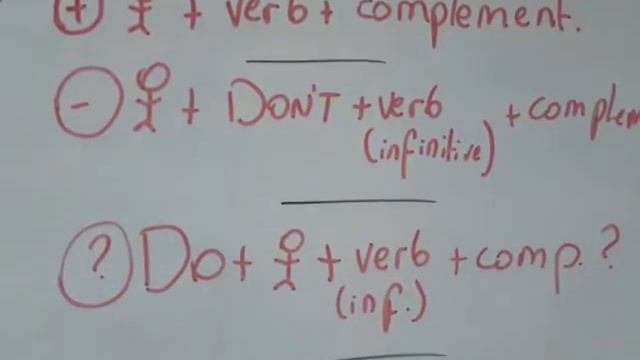 + + verb + complement.
- + DON'T + verb + complem
(infinitive)
? Do + + verb + comp. ?
(inf.)